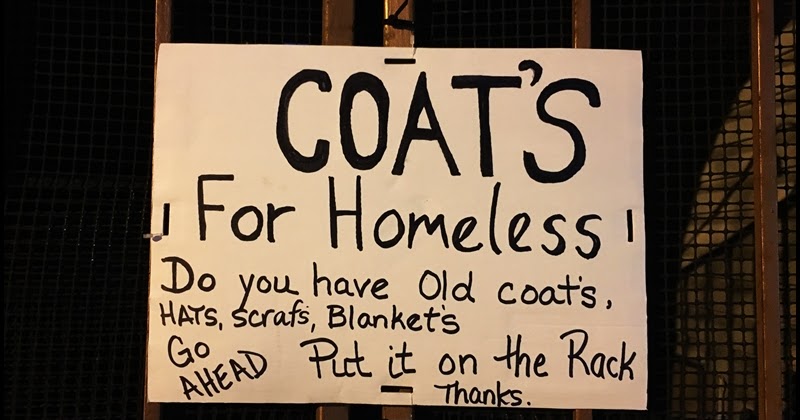 COAT'S
For Homeless
Do you have Old coat's,
HATS, scrafs, Blanket's
Go AHEAD Put it on the Rack
Thanks.